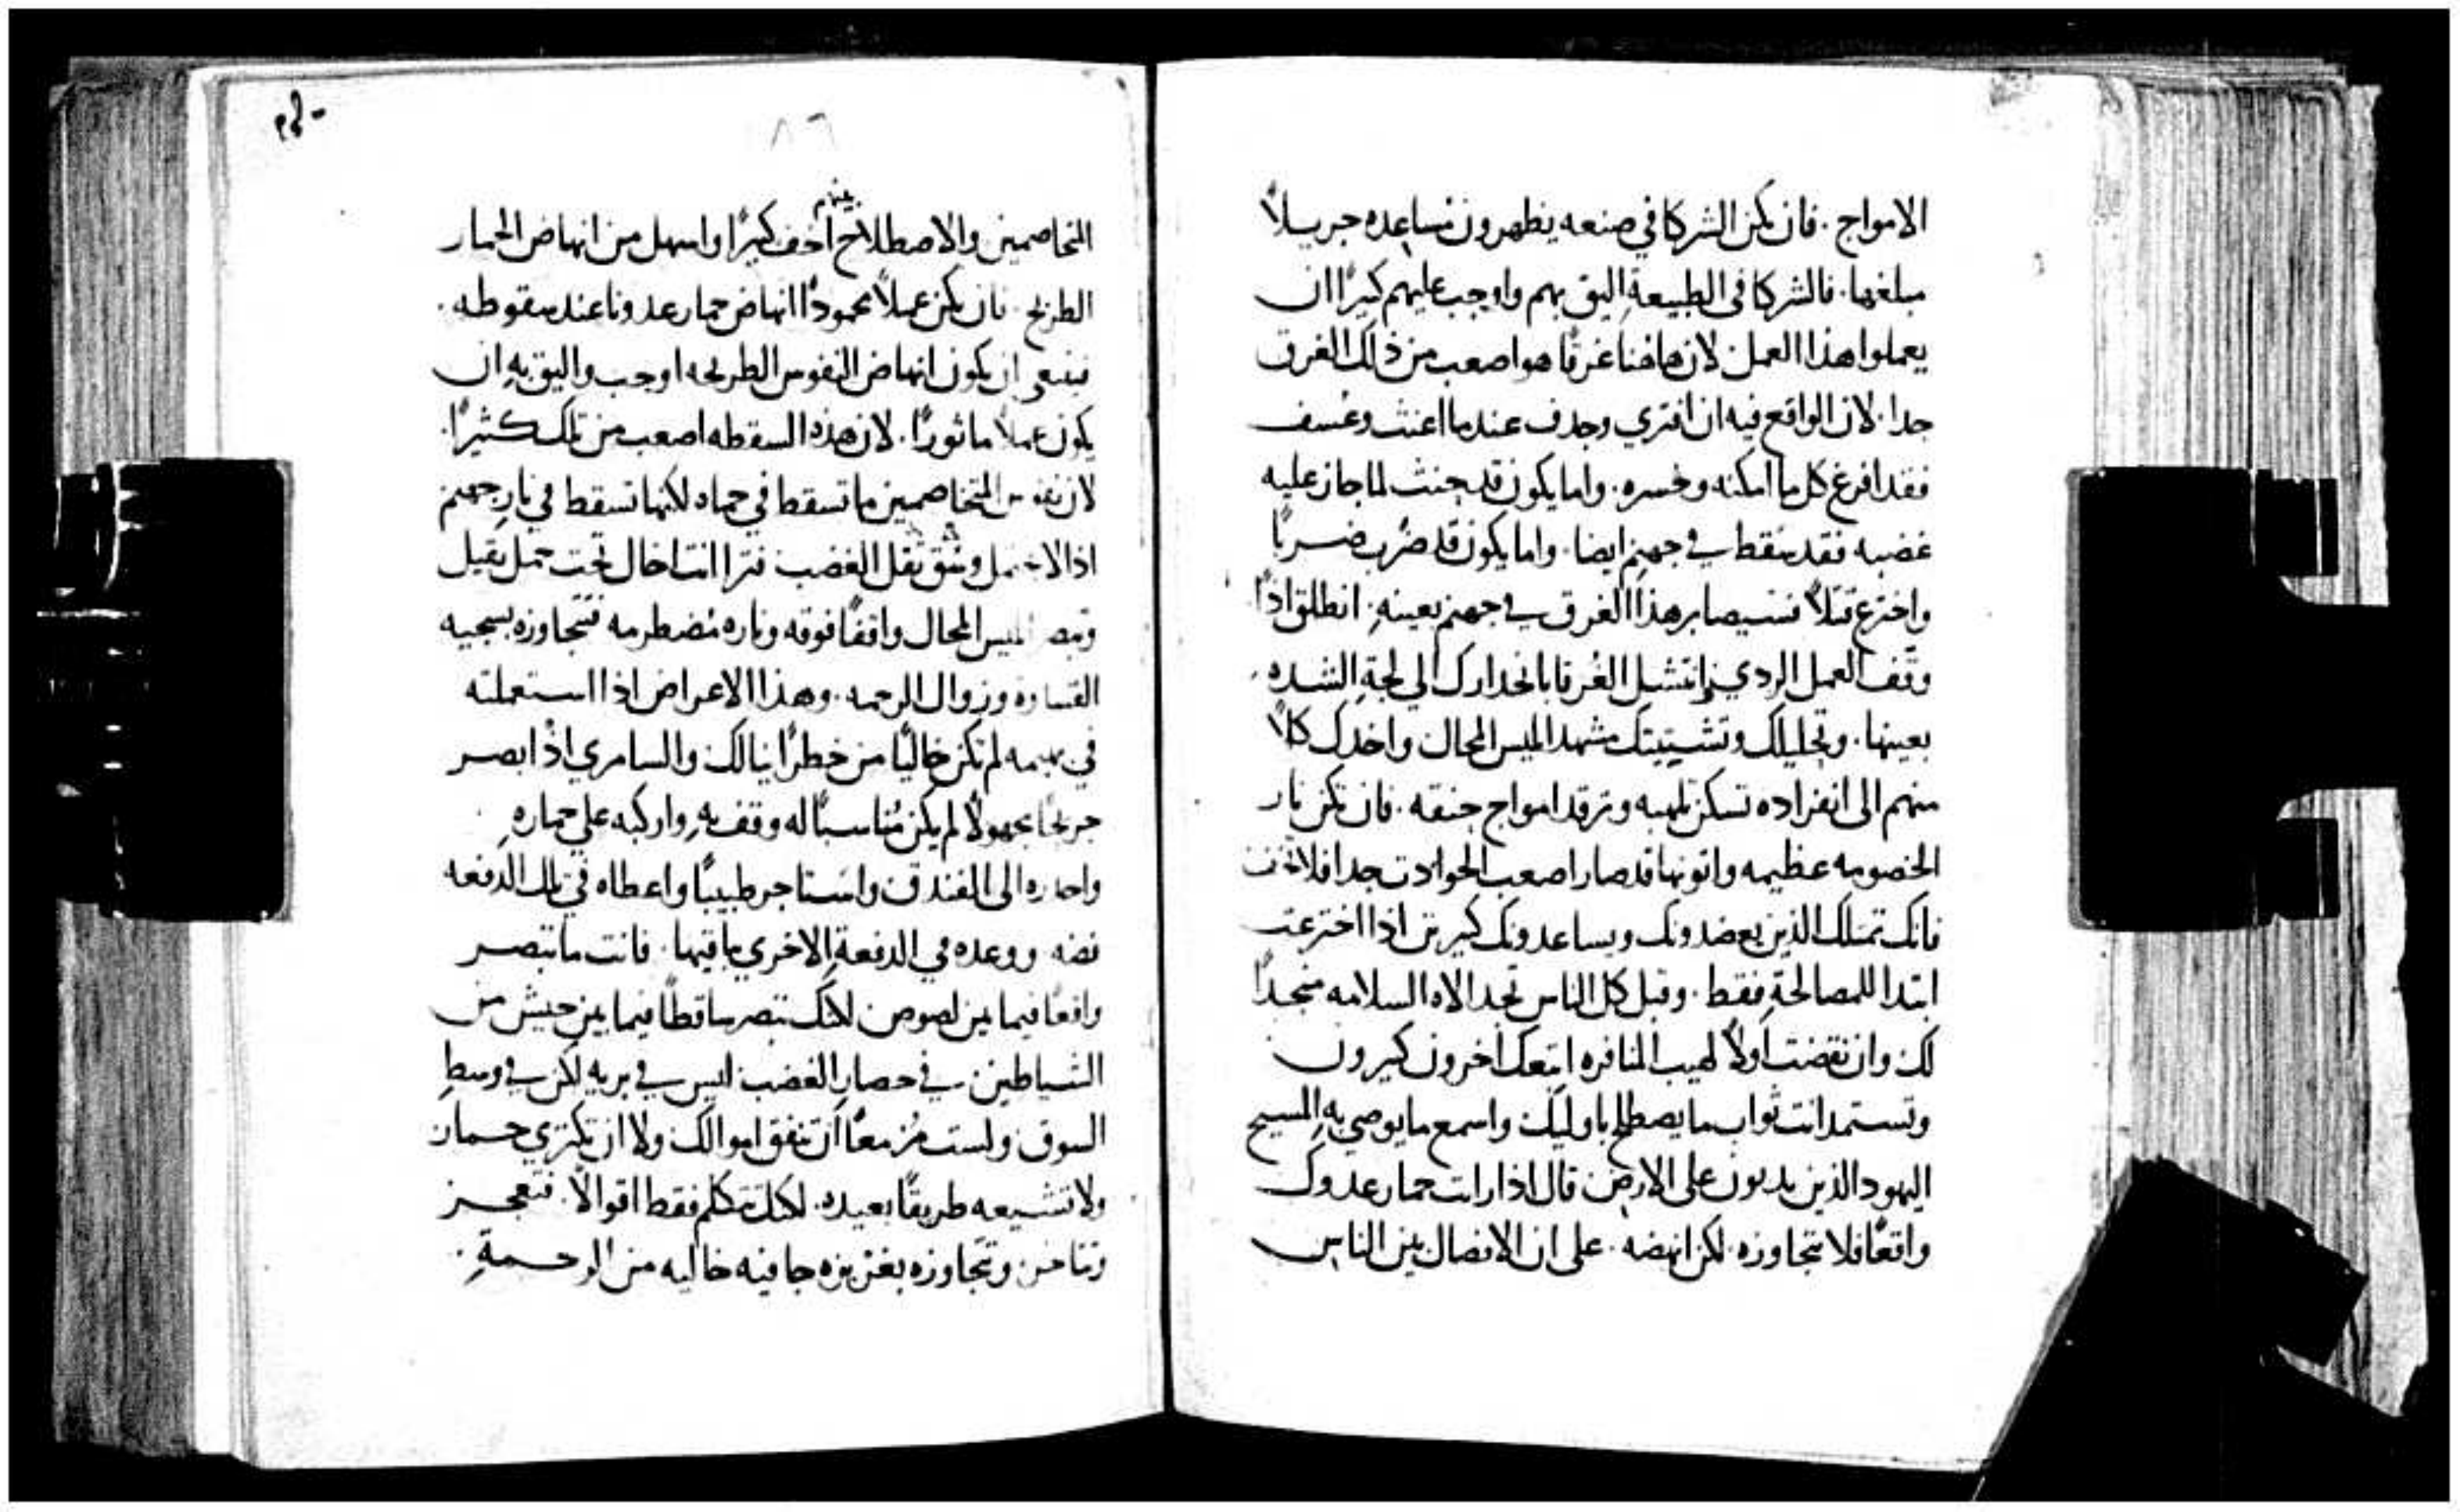 الامواج . فان يكن الشركا في صنعه يظهرون مساعده جزيلاً
مبلغها . فالشركا في الطبيعةِ اليق بهم واوجب عليهم كثيرًا ان
يعملوا هذا العمل لان هاهنا غرقًا هو اصعب من ذلك الغرق
جدا . لان الواقع فيه ان افتري وجدف عندما اعنت وعُسف
فقد افرغ كل ما امكنه وخسره . واما يكون قد حنث لما جاز عليه
غضبه فقد سقط في جهنم ايضا . واما يكون قد ضرب ضربًا
واخترع قتلاً فسيصابر هذا الغرق في جهنم بعينهِ . انطلق اذًا
وقف العمل الردي انتشل الغُرقا بانحدارك الي لجةِ الشده
بعينها . وتحليلك وتشتيتك مشهد ابليس المحال واخدك كلاً
منهم الى انفراده تسكن تلهبه وترقد امواج حنقه . فان تكن نار
الخصومه عظيمه واتونها قد صار اصعب الحوادث جدا فلا تخف
فانك تمتلك الذين يعضدونك ويساعدونك كثيرين اذا اخترعت
ابتدا للمصالحةِ فقط . وقبل كل الناس تجد الاه السلامه منجدًا
لك وان نقضت اولاً لهيب المنافره اتبعك اخرون كثيرون
وتستمد انت ثواب ما يصطلح باوليك واسمع ما يوصي بهِ المسيح
اليهود الذين يدبون على الارض قال اذا رايت حمار عدوك
واقعًا فلا تتجاوزه لكن انهضه . على ان الانفصال بين الناس
٨٦
بينهم
المتخاصمين والاصطلاح اخف كثيرًا واسهل من انهاض الحمار
الطريح . فان يكن عملاً محمودًا انهاض حمار عدونا عند سقوطه .
فينبغي ان يكون انهاض النفوس الطريحه اوجب واليق بهِ ان
يكون عملاً ماثورًا . لان هذه السقطه اصعب من تلك كثيرًا .
لان نفوس المتخاصمين ما تسقط في حماه لكنها تسقط في نار جهنم
اذا لا تحتمل وسق ثقل الغضب فترا انت اخاك تحت حمل ثقيل
وتبصر ابليس المحال واقفًا فوقه وناره مُضطرمه فتتجاوزه بسجيه
القساوه وزوال الرحمه . وهذا الاعراض اذا استعملته
في بهيمه لم تكن خاليًا من خطر انيالك والسامري اذ ابصر
جريحًا مجهولاً لم يكن مُناسبًا له وقف بهِ واركبه على حمارهِ
واحدره الى الفندق واستاجر طبيبًا واعطاه في تلك الدفعه
فضه . ووعده في الدفعةِ الاخري باقيها . فانت ما تبصر
واقعًا فيما بين لصوص لكنك تبصر ساقطًا فيما بين جيش من
الشياطين في حصار الغضب ليس في بريه لكن في وسطِ
السوق ولست مُزمعًا ان تنفق اموالك ولا ان تكتري حمار
ولا تشيعه طريقًا بعيده . لكنك تتكلم فقط اقوالاً . فتعجز
وتتاخر وتتجاوزه بغريزه جافيه خاليه من الرحمةِ .